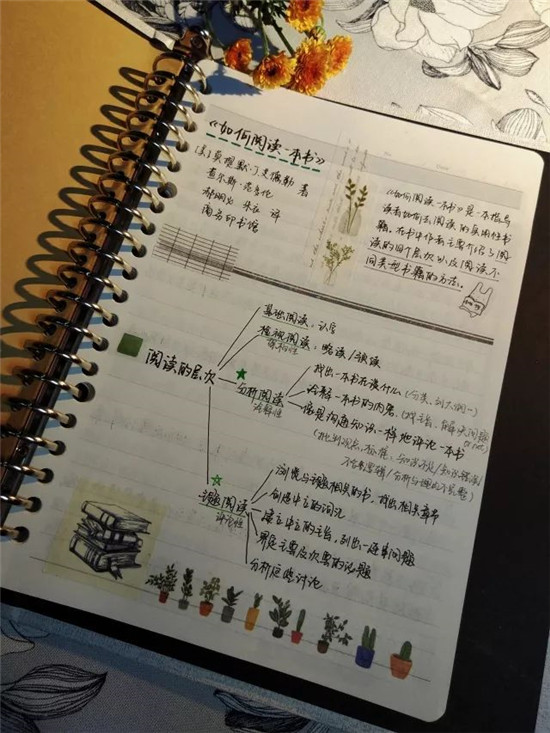 《如何阅读一本书》
[美]莫提默·J.艾德勒 著
查尔斯·范多伦
郝明义 朱衣 译
商务印书馆
《如何阅读一本书》是一本指导
读者如何去阅读的实用性书
籍。在书中作者主要介绍了阅
读的四个层次以及阅读不
同类型书籍的方法。
阅读的层次
基础阅读、认字
检视阅读、略读/读
架构性
分析阅读
诠释性
找出一本书在谈什么(分类、列大纲一)
诠释一本书的内容(找主旨、解决问题
像是沟通知识一样地评论一本书
(批判观点、标准、知识不足/知识错误/
不合逻辑/分析与理由不完整)
主题阅读
评论性
浏览与主题相关的书,找出相关章节
创造中立的词汇
建立中立的主旨,列出一连串问题
界定主要及次要的议题
分析这些讨论